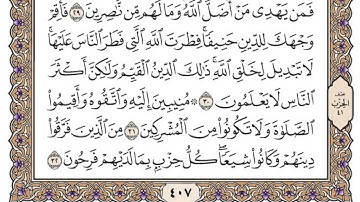 فَمَن يَهْدِى مَنْ أَضَلَّ ٱللَّهُ وَمَا لَهُم مِّن نَّٰصِرِينَ ٢٩ فَأَقِمْ
وَجْهَكَ لِلدِّينِ حَنِيفًا فِطْرَتَ ٱللَّهِ ٱلَّتِى فَطَرَ ٱلنَّاسَ عَلَيْهَا
لَا تَبْدِيلَ لِخَلْقِ ٱللَّهِ ذَٰلِكَ ٱلدِّينُ ٱلْقَيِّمُ وَلَٰكِنَّ أَكْثَرَ
ٱلنَّاسِ لَا يَعْلَمُونَ ٣٠ ۞ مُنِيبِينَ إِلَيْهِ وَٱتَّقُوهُ وَأَقِيمُوا۟
ٱلصَّلَوٰةَ وَلَا تَكُونُوا۟ مِنَ ٱلْمُشْرِكِينَ ٣١ مِنَ ٱلَّذِينَ فَرَّقُوا۟
دِينَهُمْ وَكَانُوا۟ شِيَعًا كُلُّ حِزْبٍۭ بِمَا لَدَيْهِمْ فَرِحُونَ ٣٢
الحزب
٤١
٤٠٧